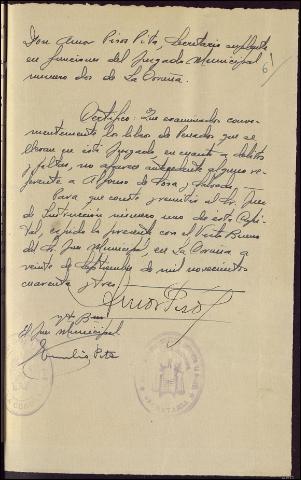 Don Amor Pisos Pita, Secretario suplente
en funciones del Juzgado Municipal
numero dos de La Coruña.
61
Certifico: Que examinados conve-
nientemente los libros de Penados que se
llevan en este Juzgado en cuanto a delitos
y faltas, no aparece antecedente alguno re-
ferente a Alfonso de Fosa,
Para que conste y remitir al Sr. Juez
de Instrucción numero uno de esta Capi-
tal, expido la presente con el Visto Bueno
del Sr. Juez Municipal, en La Coruña a
veinte de Septiembre de mil novecientos
cuarenta y tres.
Amor Pisos
Vº Bno
El Juez Municipal
Emilio Pita